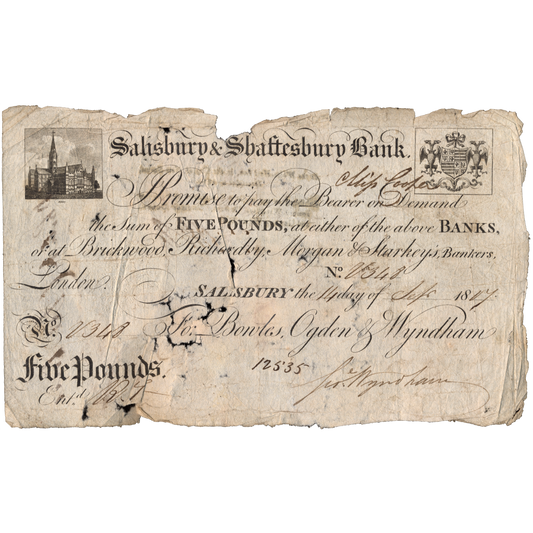 Salisbury & Shaftesbury Bank.
I Promise to pay the Bearer on Demand
the Sum of FIVE POUNDS, at either of the above BANKS,
or at Brickwood, Morgan & Starkey's, Bankers,
London.
No. 348
SALISBURY the 14 day of Sept 1807
No. 348
For Bowles, Ogden & Wyndham
12535
Five Pounds.
Geo. Wyndham
Entd.